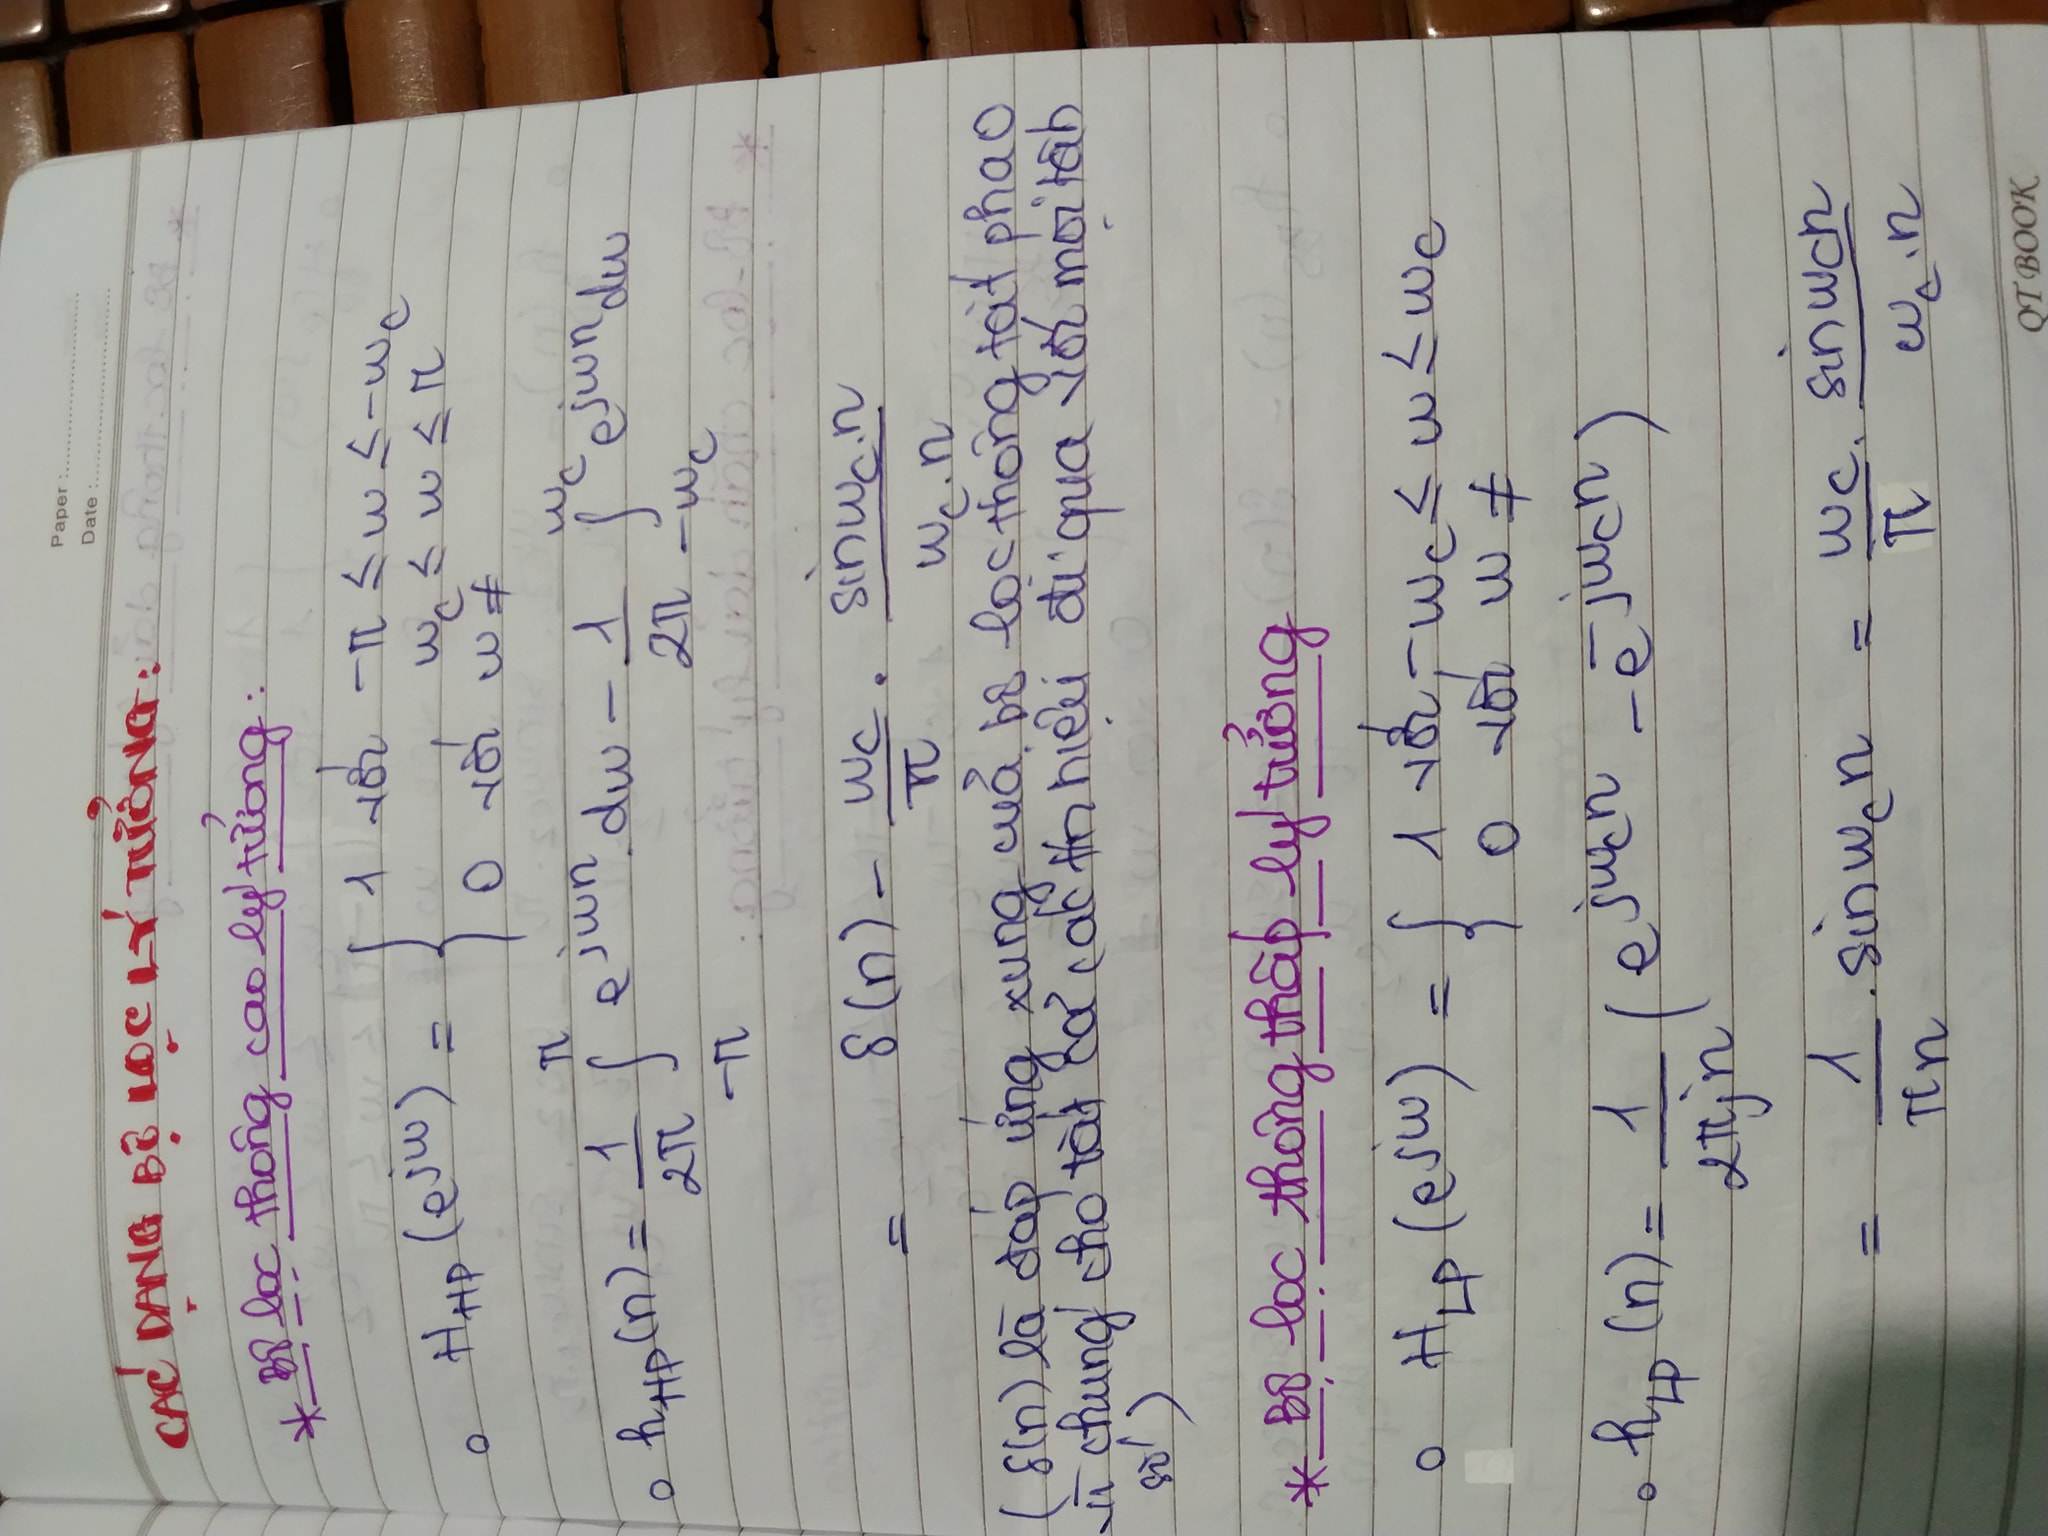 Paper :
Date :
CÁC DẠNG BỘ LỌC LÝ TƯỞNG:
* Bộ lọc thông cao lý tưởng:
o H_HP (e^jω) = { 1 với -π ≤ ω ≤ -ω_c
ω_c ≤ ω ≤ π
0 với ω ≠
o h_HP(n) = 1/2π ∫_{-π}^{π} e^{jωn} dω - 1/2π ∫_{-ω_c}^{ω_c} e^{jωn} dω
= δ(n) - ω_c/π . sinω_c.n / ω_c.n
(δ(n) là đáp ứng xung của bộ lọc thông tất phao
vì chúng cho tất cả các tín hiệu đi qua với mọi tần
số)
* Bộ lọc thông thấp lý tưởng
o H_LP (e^jω) = { 1 với -ω_c ≤ ω ≤ ω_c
0 với ω ≠
o h_LP (n) = 1/2πjn (e^{jω_c n} - e^{-jω_c n})
= 1/πn . sinω_c n = ω_c/π . sinω_c n / ω_c.n
QT BOOK